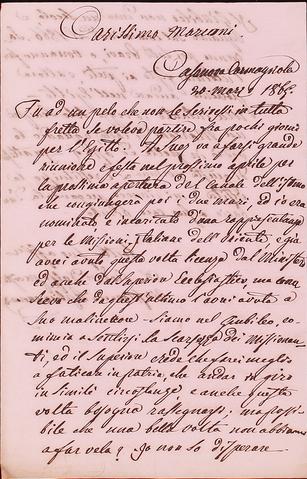 Carissimo Marconi.
Casanova Carmagnola
20 marz 1865
Fu ad un pelo che non le scrivessi in tutta
fretta se voleva partire fra pochi giorni
per l'Egitto. A Suez va a farsi grande
riunione e festa nel prossimo aprile per
la prossima apertura del Canale dell'Istmo
che congiungerà poi i due mari, ed io era
nominato e incaricato d'una rappresentanza
per le Missioni Italiane dell'Oriente e qui
avrei avuto questa volta licenza dal Ministero
ed anche dal Superior Ecclesiastico, ma
che da quest'ultimo avuto a
suo malincuore. Siamo nel Giubileo, co-
mincia a sentirsi la scarsezza dei Missionan-
ti, ed il Superiore crede che farei meglio
a faticare in patria, che andar in giro
in simili circostanze e anche questa
volta bisogna rassegnarsi; ma possi-
bile che una bella volta non abbiamo
a far vela? Io non so disperare.